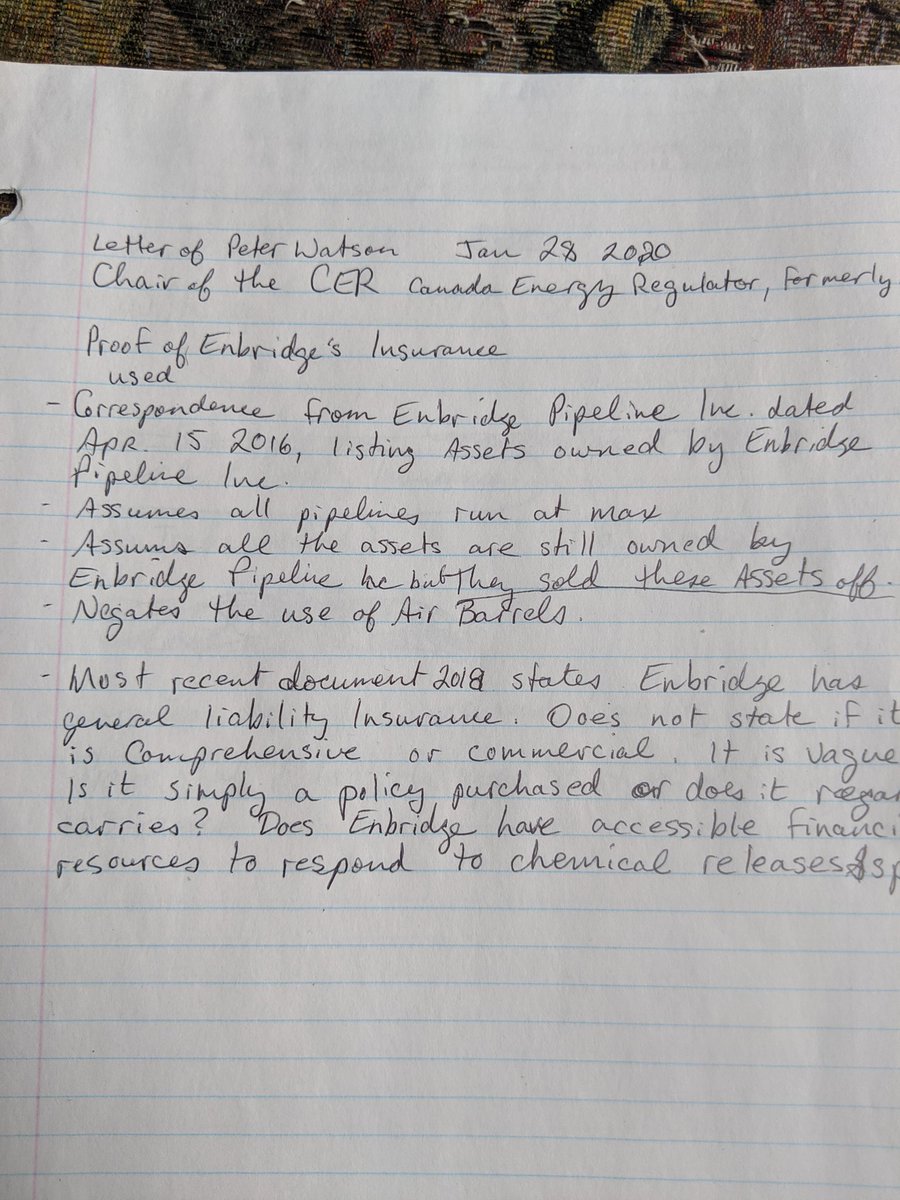 Letter of Peter Watson Jan 28 2020
Chair of the CER Canada Energy Regulator, formerly
Proof of Enbridge's Insurance
used
- Correspondence from Enbridge Pipeline Inc. dated
Apr. 15 2016, listing Assets owned by Enbridge
Pipeline Inc.
- Assumes all pipelines run at max
- Assums all the assets are still owned by
Enbridge Pipeline Inc but they sold these Assets off.
- Negates the use of Air Barrels.
- Most recent document 2018 states Enbridge has
general liability Insurance. Does not state if it
is Comprehensive or commercial. It is vague
Is it simply a policy purchased or does it
carries? Does Enbridge have accessible financi
resources to respond to chemical releases &